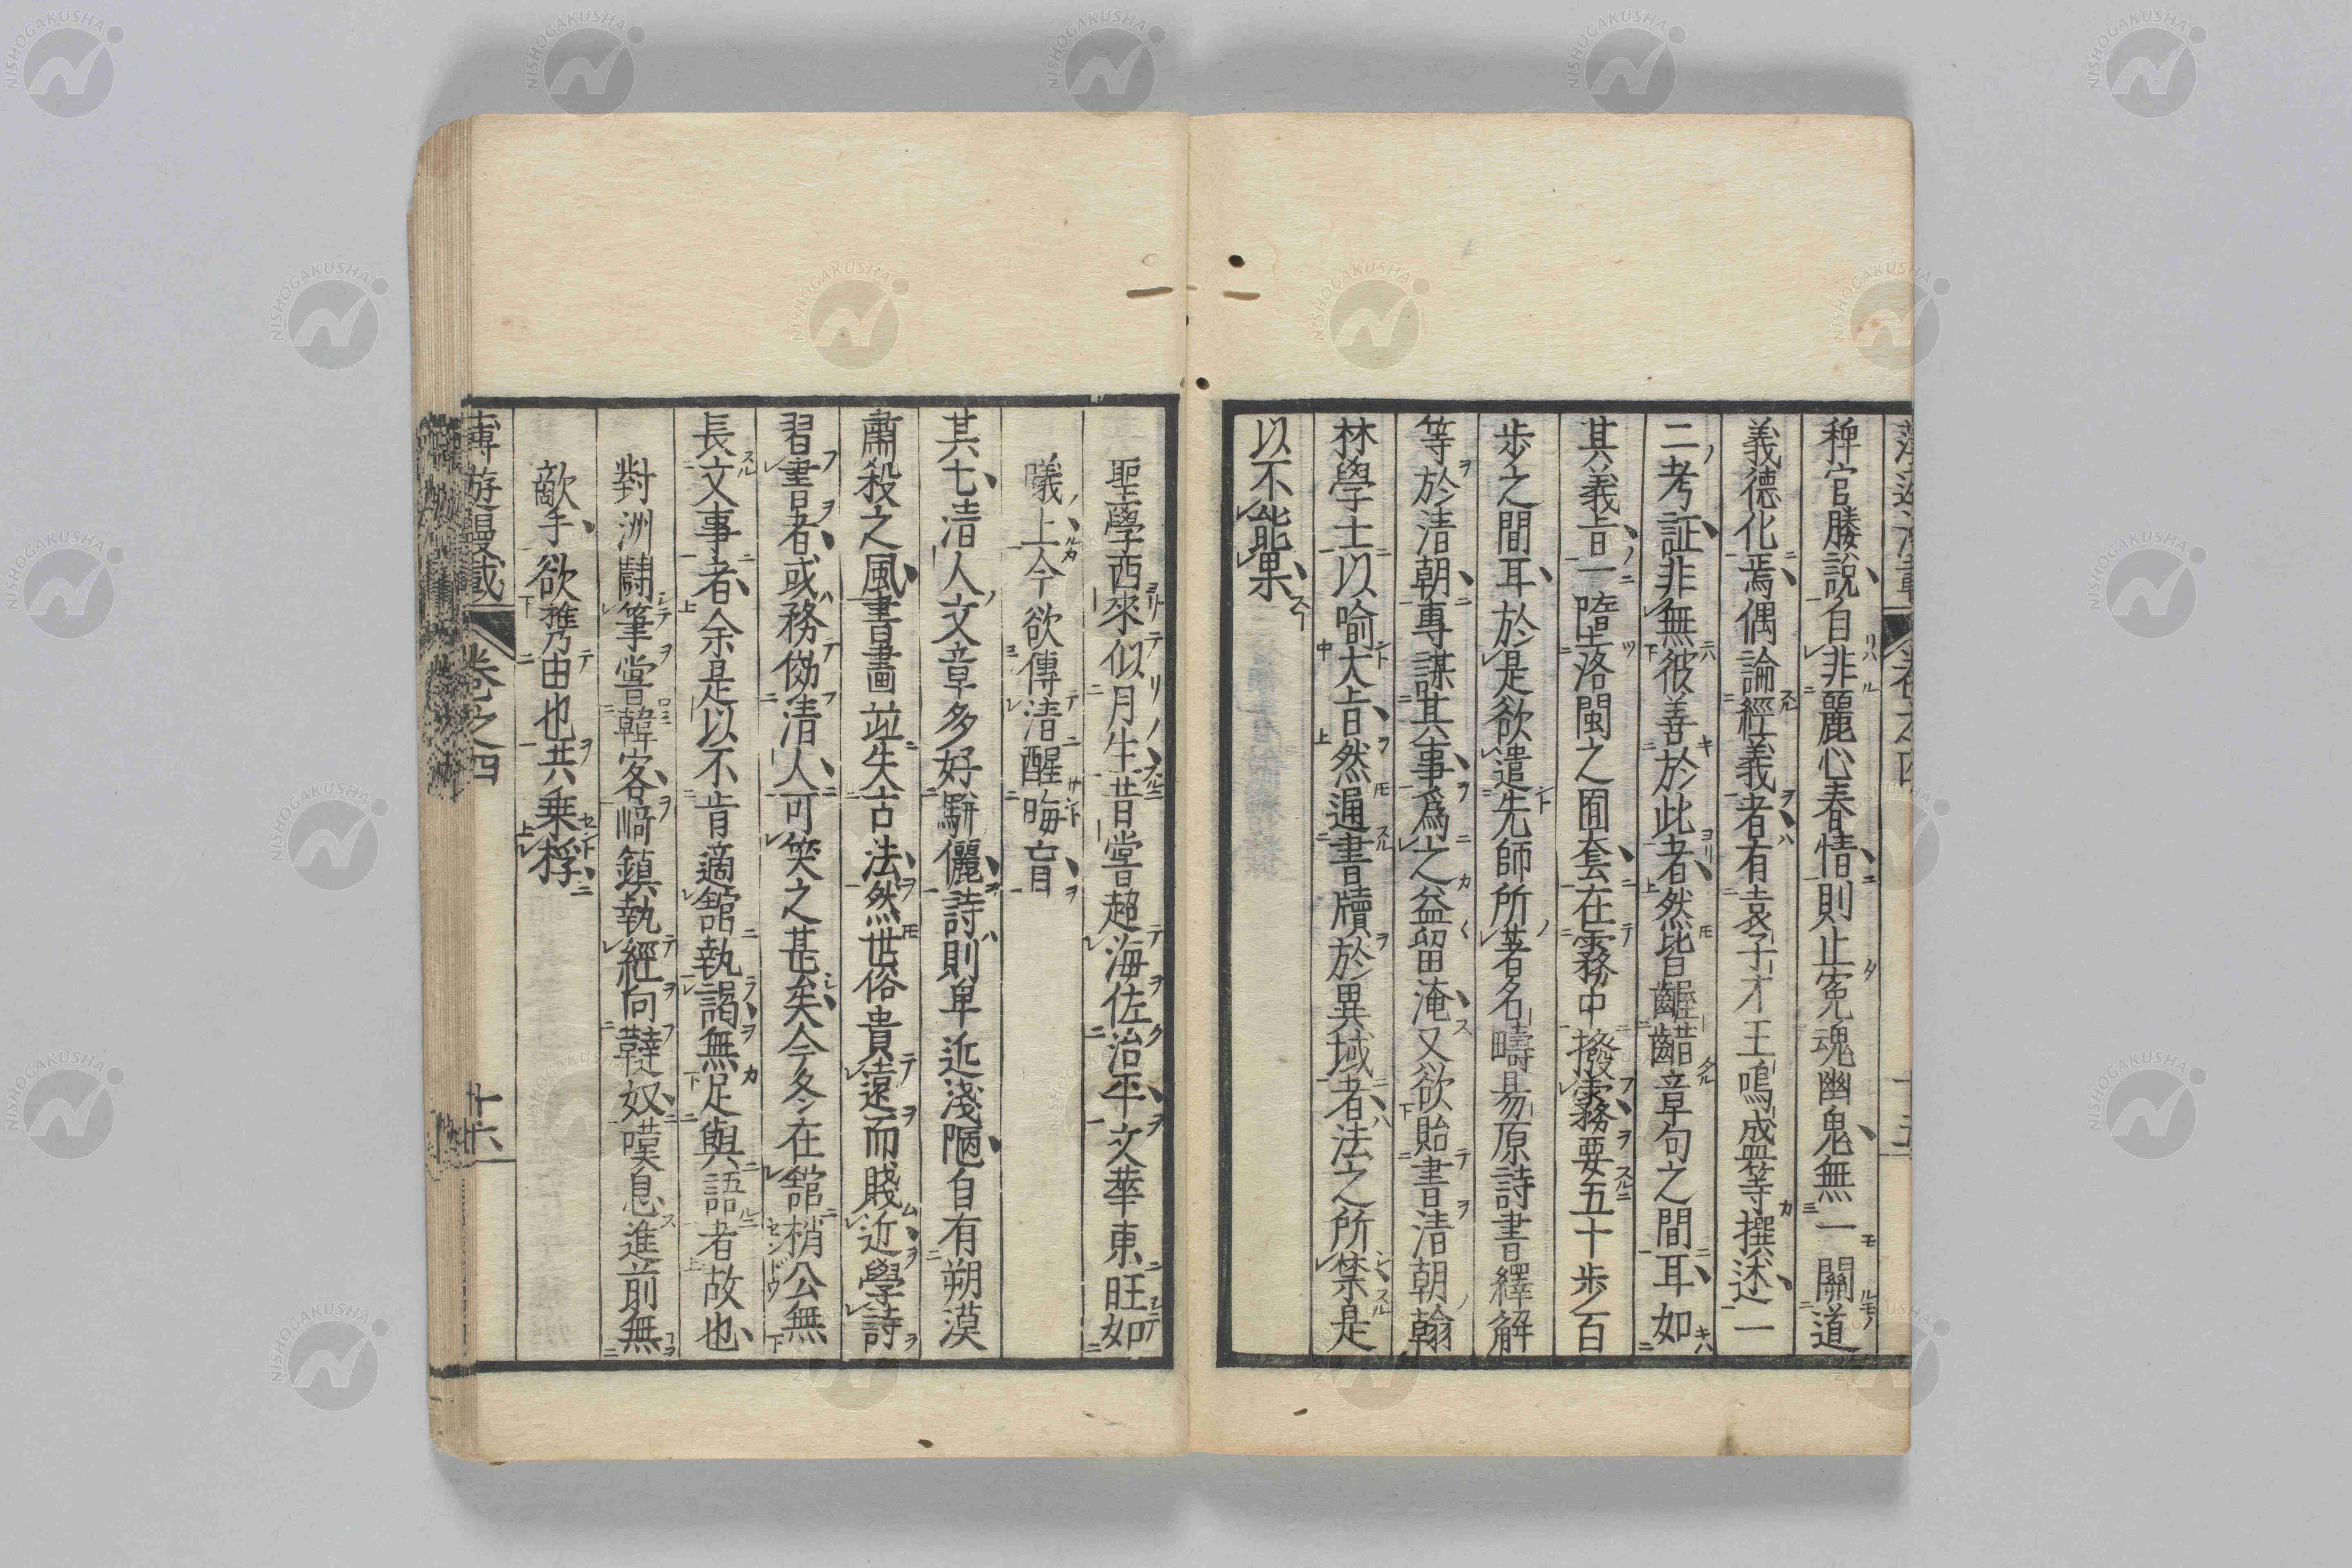 稗官勝說自非麗心春情則止寃魂幽鬼無一關道
義德化焉偶論經義者有袁子才王鳴盛等撰述一
二考証非無彼善於此者然皆齷齪章句之間耳如
其義旨一墮落閩之囿套在霧中撥霧要五十步百
步之間耳於是欲遣先師所著名疇易原詩書繹解
等於清朝專謀其事爲之益留淹又欲貽書清朝翰
林學士以喻大旨然通書牘於異域者法之所禁是
以不能果
聖學西來似月生昔嘗超海佐治平文華東旺如
曦上今欲傳清醒晦盲
其七清人文章多好駢儷詩則卑近淺陋自有朔漠
肅殺之風書畫竝失古法然世俗貴遠而賤近學詩
習書者或務傚清人可笑之甚矣今冬在舘梢公無
長文事者余是以不肯適舘執謁無足與語者故也
對洲鬪筆嘗韓客﨑鎮執經向韃奴嘆息進前無
敵手欲攜由也共乘桴
卷之四
十六
NISHOGAKUSHA